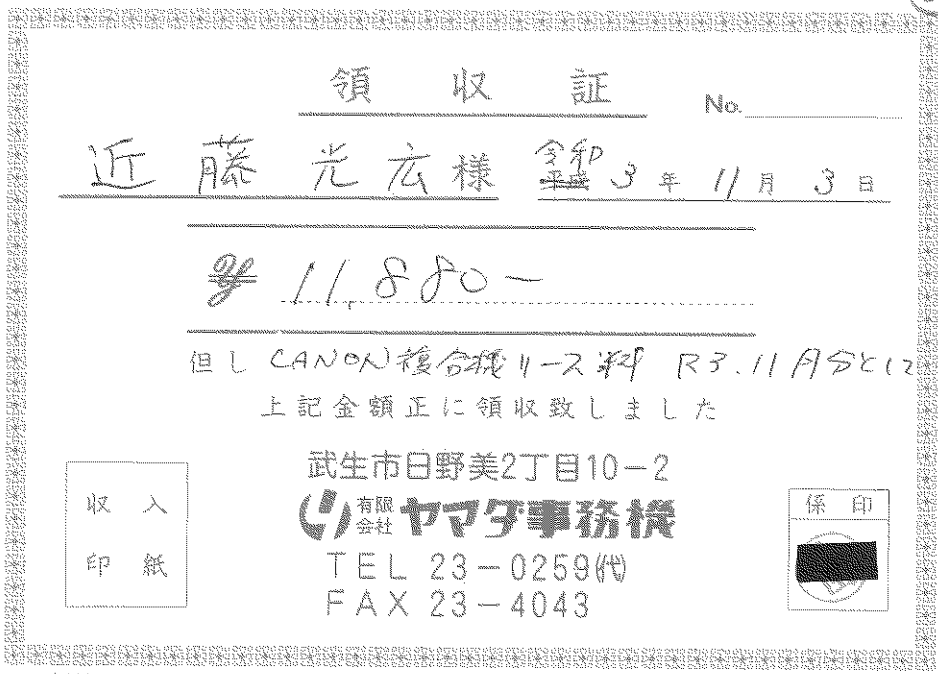 領収証 No.
近藤光広様 令和 平成 3年11月3日
¥ 11,880-
但し CANON複合機リース料 R3.11月分として
上記金額正に領収致しました
武生市日野美2丁目10-2
有限会社 ヤマダ事務機
TEL 23-0259(代)
FAX 23-4043
収入印紙
係印